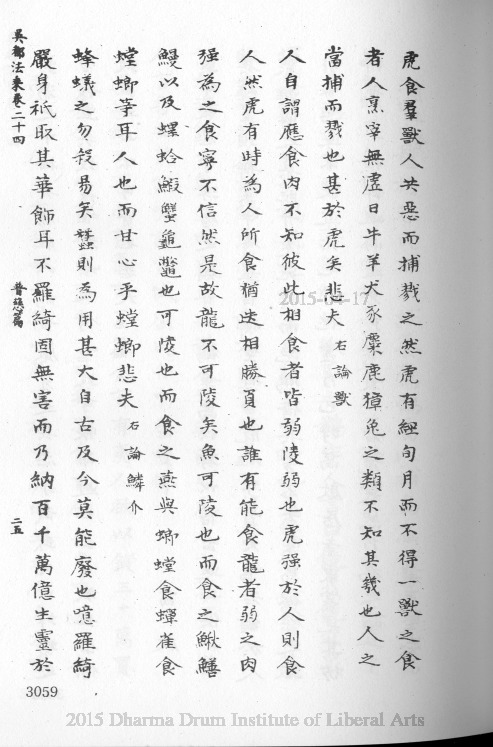 虎食羣獸人共惡而捕戮之然虎有經旬月而不得一獸之食
者人烹宰無虛日牛羊犬豕麋鹿獐兔之類不知其幾也人之
當捕而戮也甚於虎矣悲夫 右論獸
人自謂應食肉不知彼此相食者皆弱陵弱也虎强於人則食
人然虎有時為人所食猶迭相勝負也誰有能食龍者弱之肉
强為之食寧不信然是故龍不可陵矣魚可陵也而食之鰍鱔
鰻以及螺蛤蝦蟹龜鼈也可陵也而食之燕與蜻螳食蟬雀食
螳螂等耳人也而甘心乎螳螂悲夫 右論鱗介
蜂蟻之勿殺易矣蠶則為用甚大自古及今莫能廢也噫羅綺
嚴身祇取其華飾耳不羅綺固無害而乃納百千萬億生靈於
吳都法乘卷二十四
普慈篇
二五
3059
2015-04-17
2015 Dharma Drum Institute of Liberal Arts